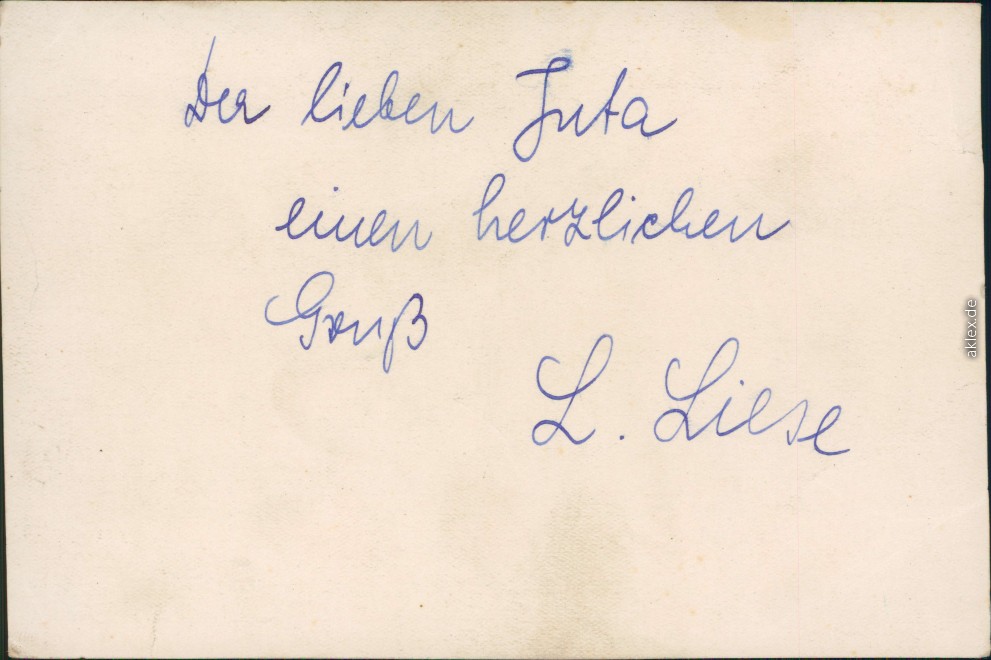 Der lieben Juta
einen herzlichen
Gruß
L. Liese
aklex.de